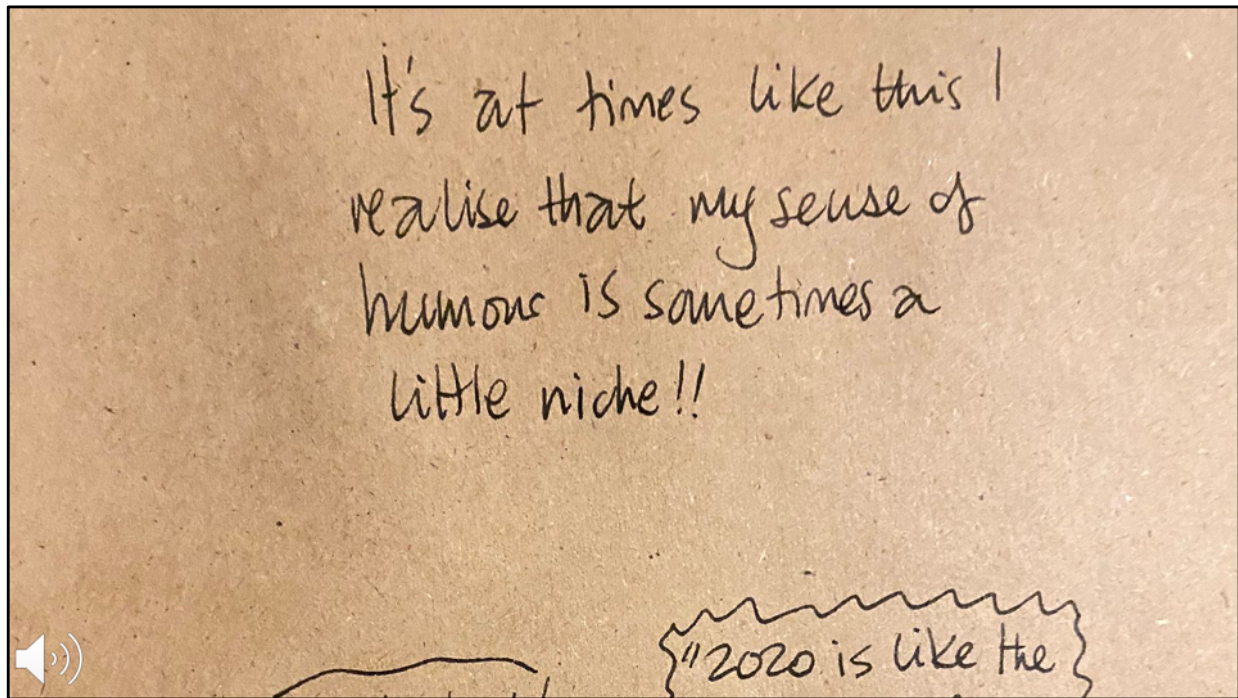 It's at times like this I
realise that my sense of
humour is sometimes a
little niche!!
"2020 is like the